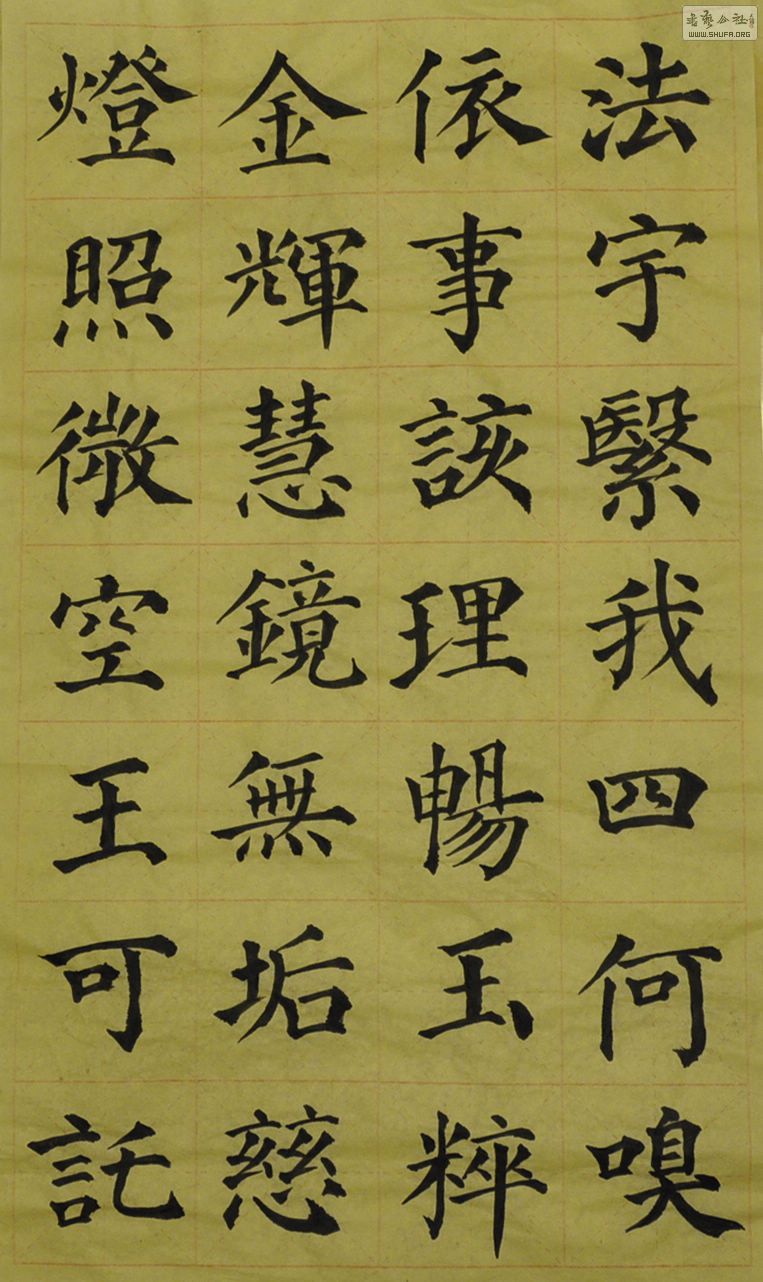 法宇繫我四何嗅
依事該理暢玉粹
金輝慧鏡無垢慈
燈照微空王可託
書藝公社
WWW.SHUFA.ORG